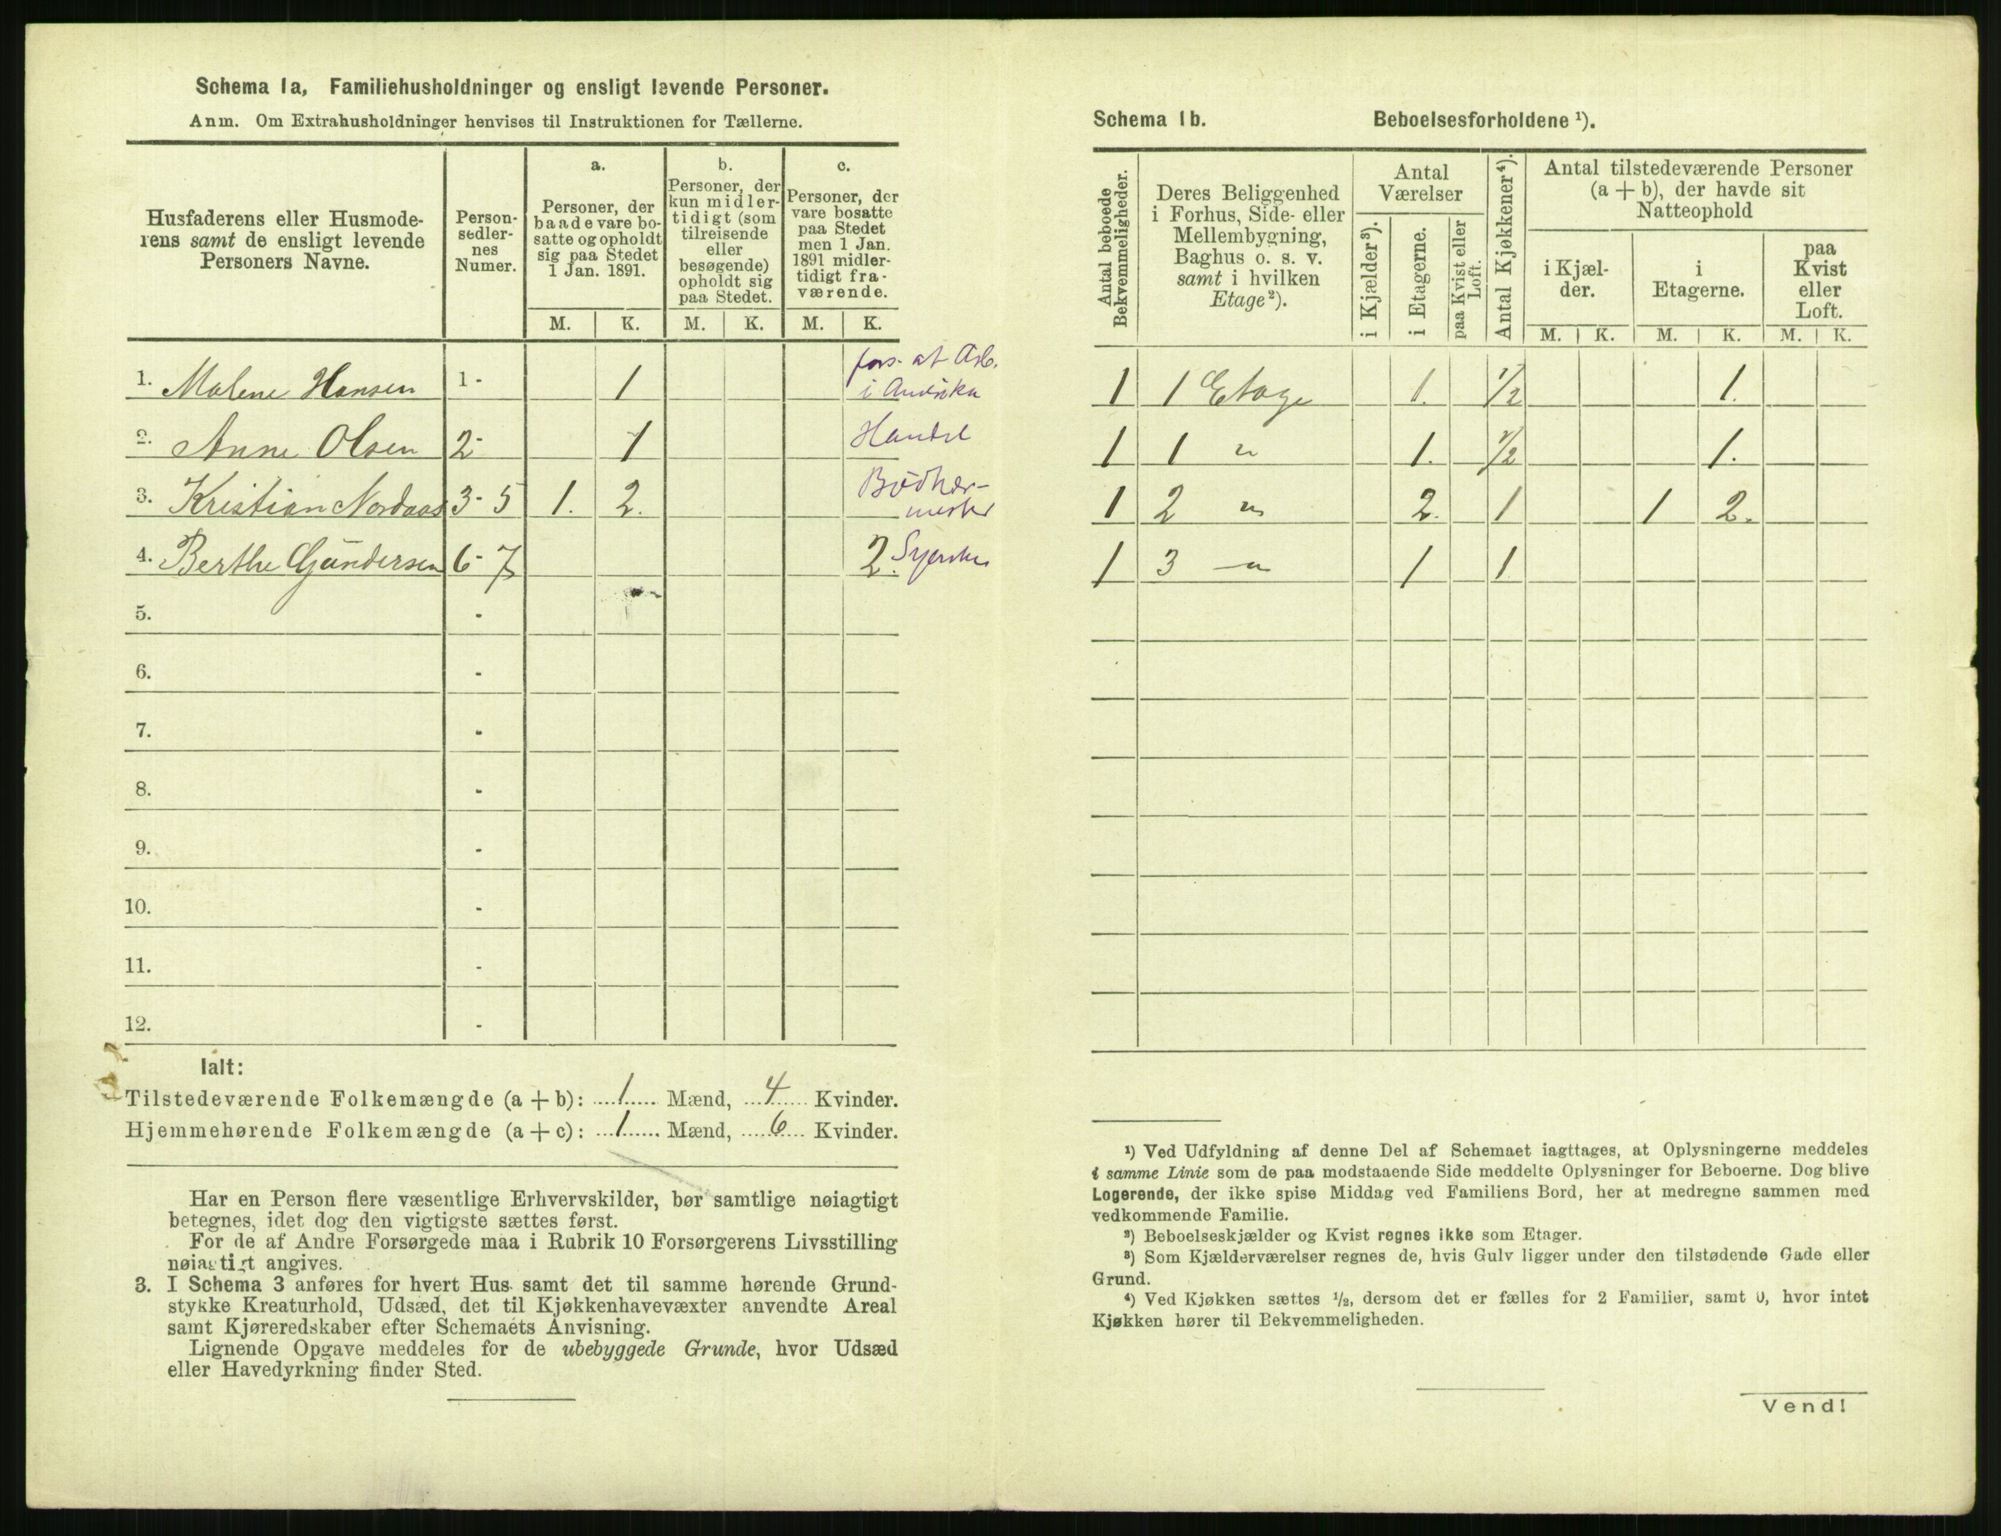 Schema 1a, Familiehusholdninger og ensligt levende Personer.
Anm. Om Extrahusholdninger henvises til Instruktionen for Tællerne.
Husfaderens eller Husmode-
rens samt de ensligt levende
Personers Navne.
Person-
sedler-
nes
Numer.
a.
Personer, der
baade vare bo-
satte og opholdt
sig paa Stedet
1 Jan. 1891.
b.
Personer, der
kun midler-
tidigt (som
tilreisende
eller
besøgende)
opholdt sig
paa Stedet.
c.
Personer, der
vare bosatte
paa Stedet
men 1 Jan.
1891 midler-
tidigt fra-
værende.
M. K. M. K. M. K.
1. Malene Hansen 1- 1 fors. at Arb.
i Amerika
2. Anne Olsen 2- 1 Handel
3. Kristian Nordaas 3-5 1. 2. Bødker-
mester
4. Berthe Gundersen 6-7 2. Syerske
5. -
6. -
7. -
8. -
9. -
10. -
11. -
12. -
Ialt:
Tilstedeværende Folkemængde (a + b): 1 Mænd, 4 Kvinder.
Hjemmehørende Folkemængde (a + c): 1 Mænd, 6 Kvinder.
Har en Person flere væsentlige Erhvervskilder, bør samtlige nøiagtigt
betegnes, idet dog den vigtigste sættes først.
For de af Andre Forsørgede maa i Rubrik 10 Forsørgerens Livsstilling
nøiagtigt angives.
3. I Schema 3 anføres for hvert Hus samt det til samme hørende Grund-
stykke Kreaturhold, Udsæd, det til Kjøkkenhavevæxter anvendte Areal
samt Kjøreredskaber efter Schemaets Anvisning.
Lignende Opgave meddeles for de ubebyggede Grunde, hvor Udsæd
eller Havedyrkning finder Sted.
Schema 1b. Beboelsesforholdene ¹).
Antal beboede
Bekvemmeligheder.
Deres Beliggenhed
i Forhus, Side- eller
Mellembygning,
Baghus o. s. v.
samt i hvilken
Etage ²).
Antal
Værelser
i Kjælder ³).
i Etagerne.
paa Kvist eller
Loft.
Antal Kjøkkener ⁴).
Antal tilstedeværende Personer
(a + b), der havde sit
Natteophold
i Kjæl-
der.
i
Etagerne.
paa
Kvist
eller
Loft.
M. K. M. K. M. K.
1 1 Etage 1. 1/2 1.
1 1 " 1. 1/2 1.
1 2 " 2. 1 1 2.
1 3 " 1 1
¹) Ved Udfyldning af denne Del af Schemaet iagttages, at Oplysningerne meddeles
i samme Linie som de paa modstaaende Side meddelte Oplysninger for Beboerne. Dog blive
Logerende, der ikke spise Middag ved Familiens Bord, her at medregne sammen med
vedkommende Familie.
²) Beboelseskjælder og Kvist regnes ikke som Etager.
³) Som Kjælderværelser regnes de, hvis Gulv ligger under den tilstødende Gade eller
Grund.
⁴) Ved Kjøkken sættes ½, dersom det er fælles for 2 Familier, samt 0, hvor intet
Kjøkken hører til Bekvemmeligheden.
Vend!